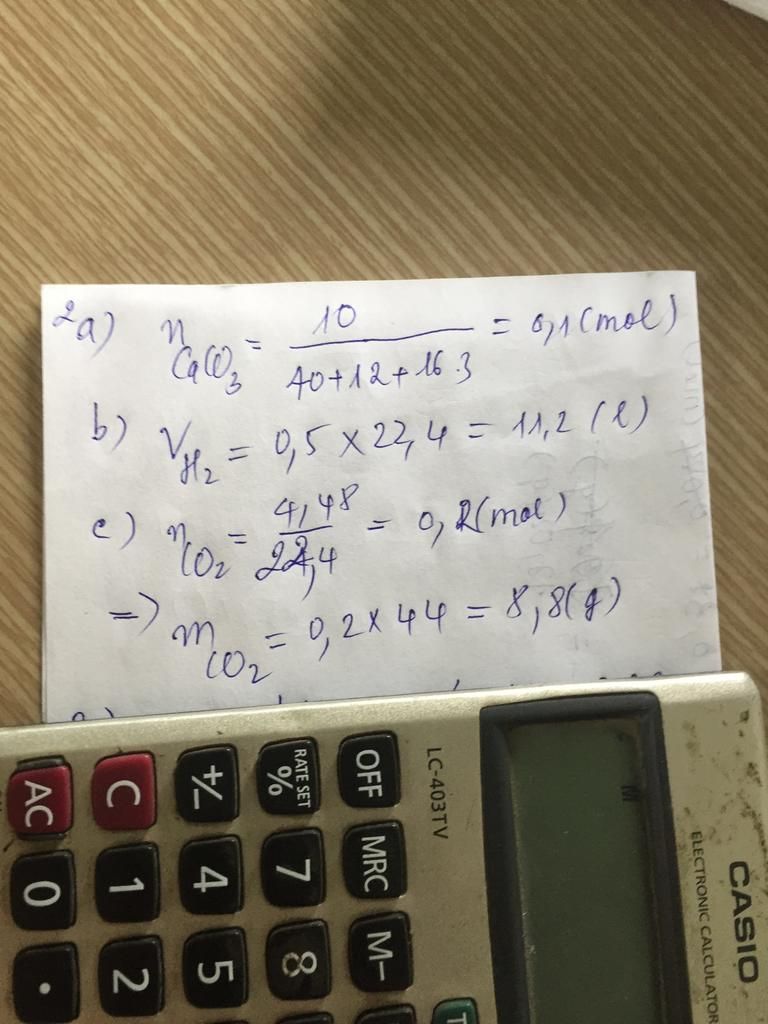 2a) n CaCO3 = 10 / 40+12+16.3 = 0,1(mol)
b) VH2 = 0,5 x 22,4 = 11,2 (l)
c) nCO2 = 4,48 / 22,4 = 0,2(mol)
=> mCO2 = 0,2 x 44 = 8,8(g)
CASIO
ELECTRONIC CALCULATOR
LC-403TV
M
OFF MRC M–
RATE SET
% 7 8
+/– 4 5
C 1 2
AC 0 .